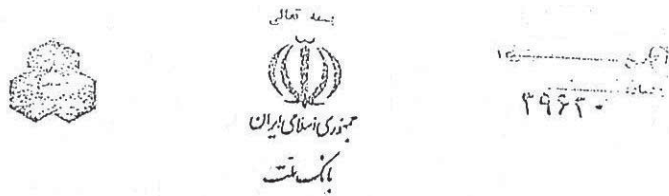 بسمه تعالی
جمهوری اسلامی ایران
بانک ملت
تاریخ
شماره
۳۹۶۲۰